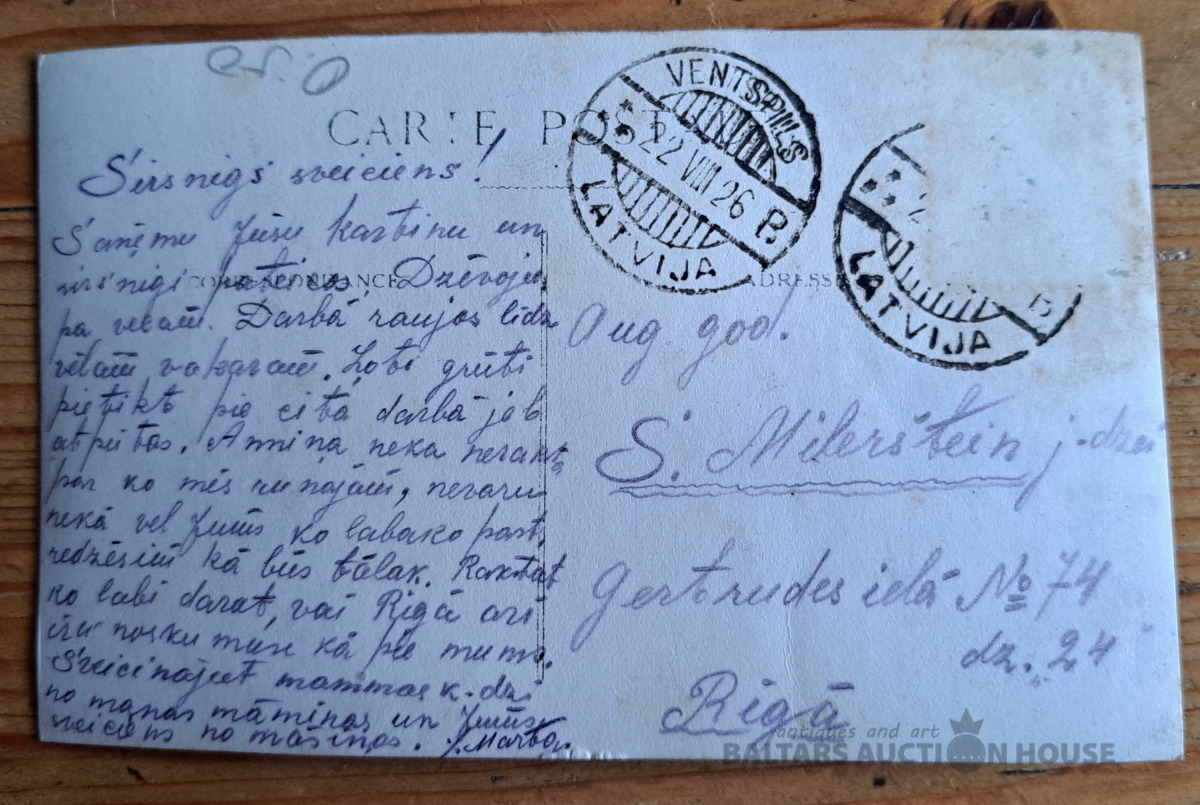 CARTE POSTALE
VENTSPILS
22 VIII 26
B
LATVIJA
LATVIJA
B
CORRESPONDANCE
ADRESSE
Sirsnigs sveiciens!
Saņēmu Jūsu kartiņu un
sirsnigi pateicos. Dzēvoju
pa vecam. Darbā raujos līdz
vēlam vakaram. Ļoti grūti
pietikt pie cita darba jeb
atpūtas. Anniņa neka neraksta
par ko mēs runajām, nevaru
nekā vel Jums ko labako past,
redzēsim kā būs tālak. Rakstat
ko labi darat, vai Rigā ari
tāu mums.
Sveicinajat mammas k-dzi
no manas māmiņas un Jums
sveiciens no māsiņas. Marta.
Aug god.
S. Milerštein j-dzei
Gertrudes ielā № 74
dz. 24
Rigā
antiques and art
BALTARS AUCTION HOUSE